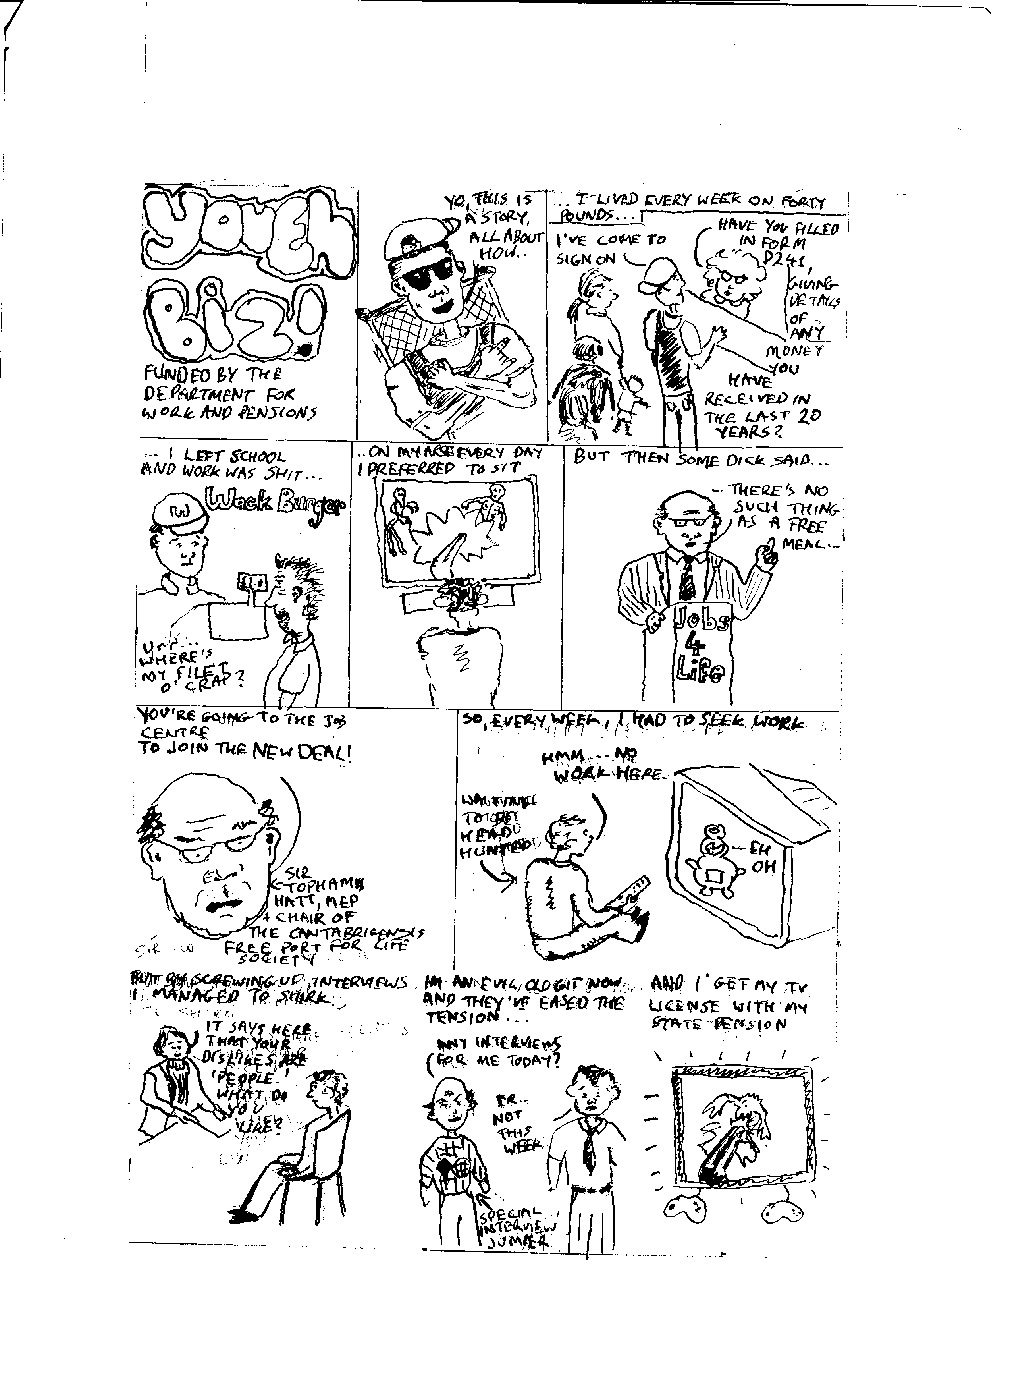 YOUTH
BIZ!
FUNDED BY THE
DEPARTMENT FOR
WORK AND PENSIONS
YO, THIS IS
A STORY,
ALL ABOUT
HOW..
... I LIVED EVERY WEEK ON FORTY
POUNDS...
I'VE COME TO
SIGN ON
HAVE YOU FILLED
IN FORM
P241,
GIVING
DETAILS
OF
ANY
MONEY
YOU
HAVE
RECEIVED IN
THE LAST 20
YEARS?
... I LEFT SCHOOL
AND WORK WAS SHIT...
Wack Burger
W
URR...
WHERE'S
MY FILET
O' CRAP?
..ON MY ARSE EVERY DAY
I PREFERRED TO SIT
BUT THEN SOME DICK SAID...
... THERE'S NO
SUCH THING
AS A FREE
MEAL...
Jobs
4
Life
YOU'RE GOING TO THE JOB
CENTRE
TO JOIN THE NEW DEAL!
SIR
TOPHAM
HATT, MEP
+ CHAIR OF
THE CANTABRIGENSIS
FREE PORT FOR LIFE
SOCIETY
SO, EVERY WEEK, I HAD TO SEEK WORK
HMM.... NO
WORK HERE..
WAITING
TO GET
HEAD
HUNTED
EH
OH
BUT BY SCREWING UP INTERVIEWS
I MANAGED TO SHIRK..
IT SAYS HERE
THAT YOUR
DISLIKES ARE
'PEOPLE.'
WHAT DO
YOU
LIKE?
I'M AN EVIL OLD GIT NOW...
AND THEY'VE EASED THE
TENSION...
ANY INTERVIEWS
FOR ME TODAY?
ER..
NOT
THIS
WEEK
SPECIAL
INTERVIEW
JUMPER
AND I GET MY TV
LICENSE WITH MY
STATE PENSION